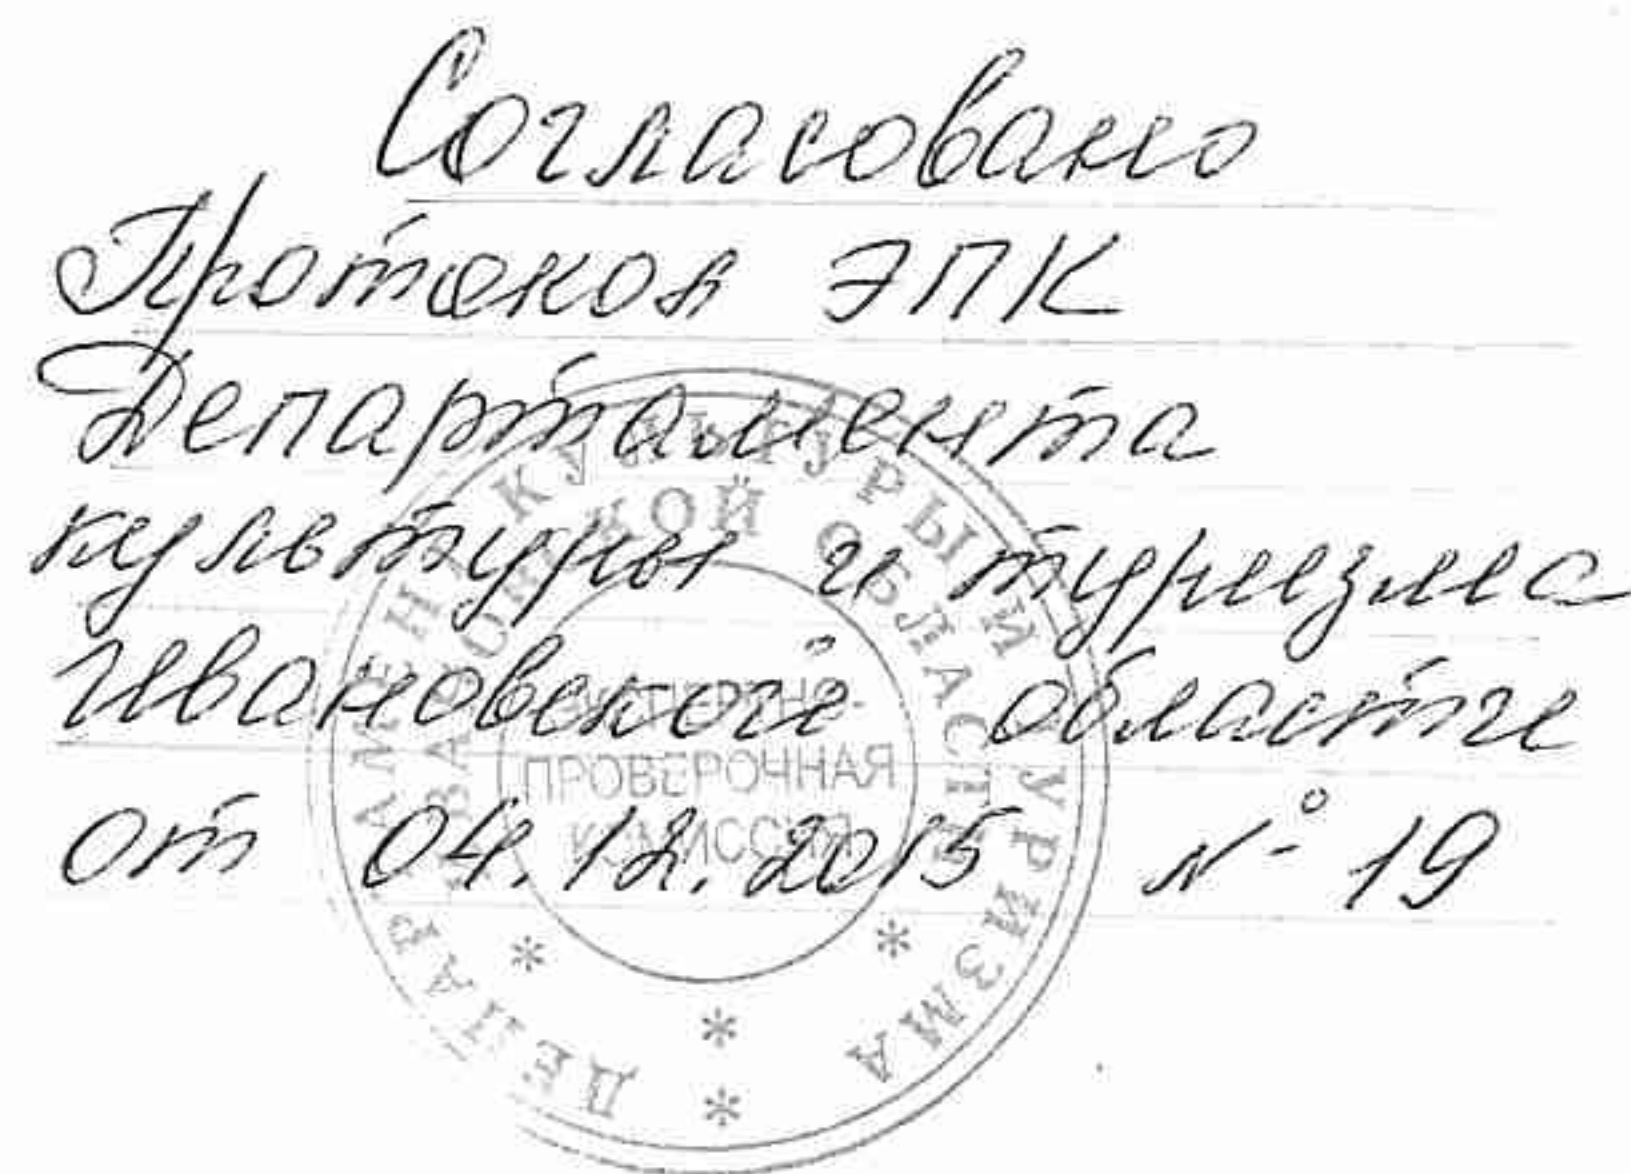 Согласовано
Протокол ЭПК
Департамента
культуры и туризма
Ивановской области
от 04.12.2015 № 19
ДЕПАРТАМЕНТ КУЛЬТУРЫ И ТУРИЗМА
ИВАНОВСКОЙ ОБЛАСТИ
ЭКСПЕРТНО-
ПРОВЕРОЧНАЯ
КОМИССИЯ